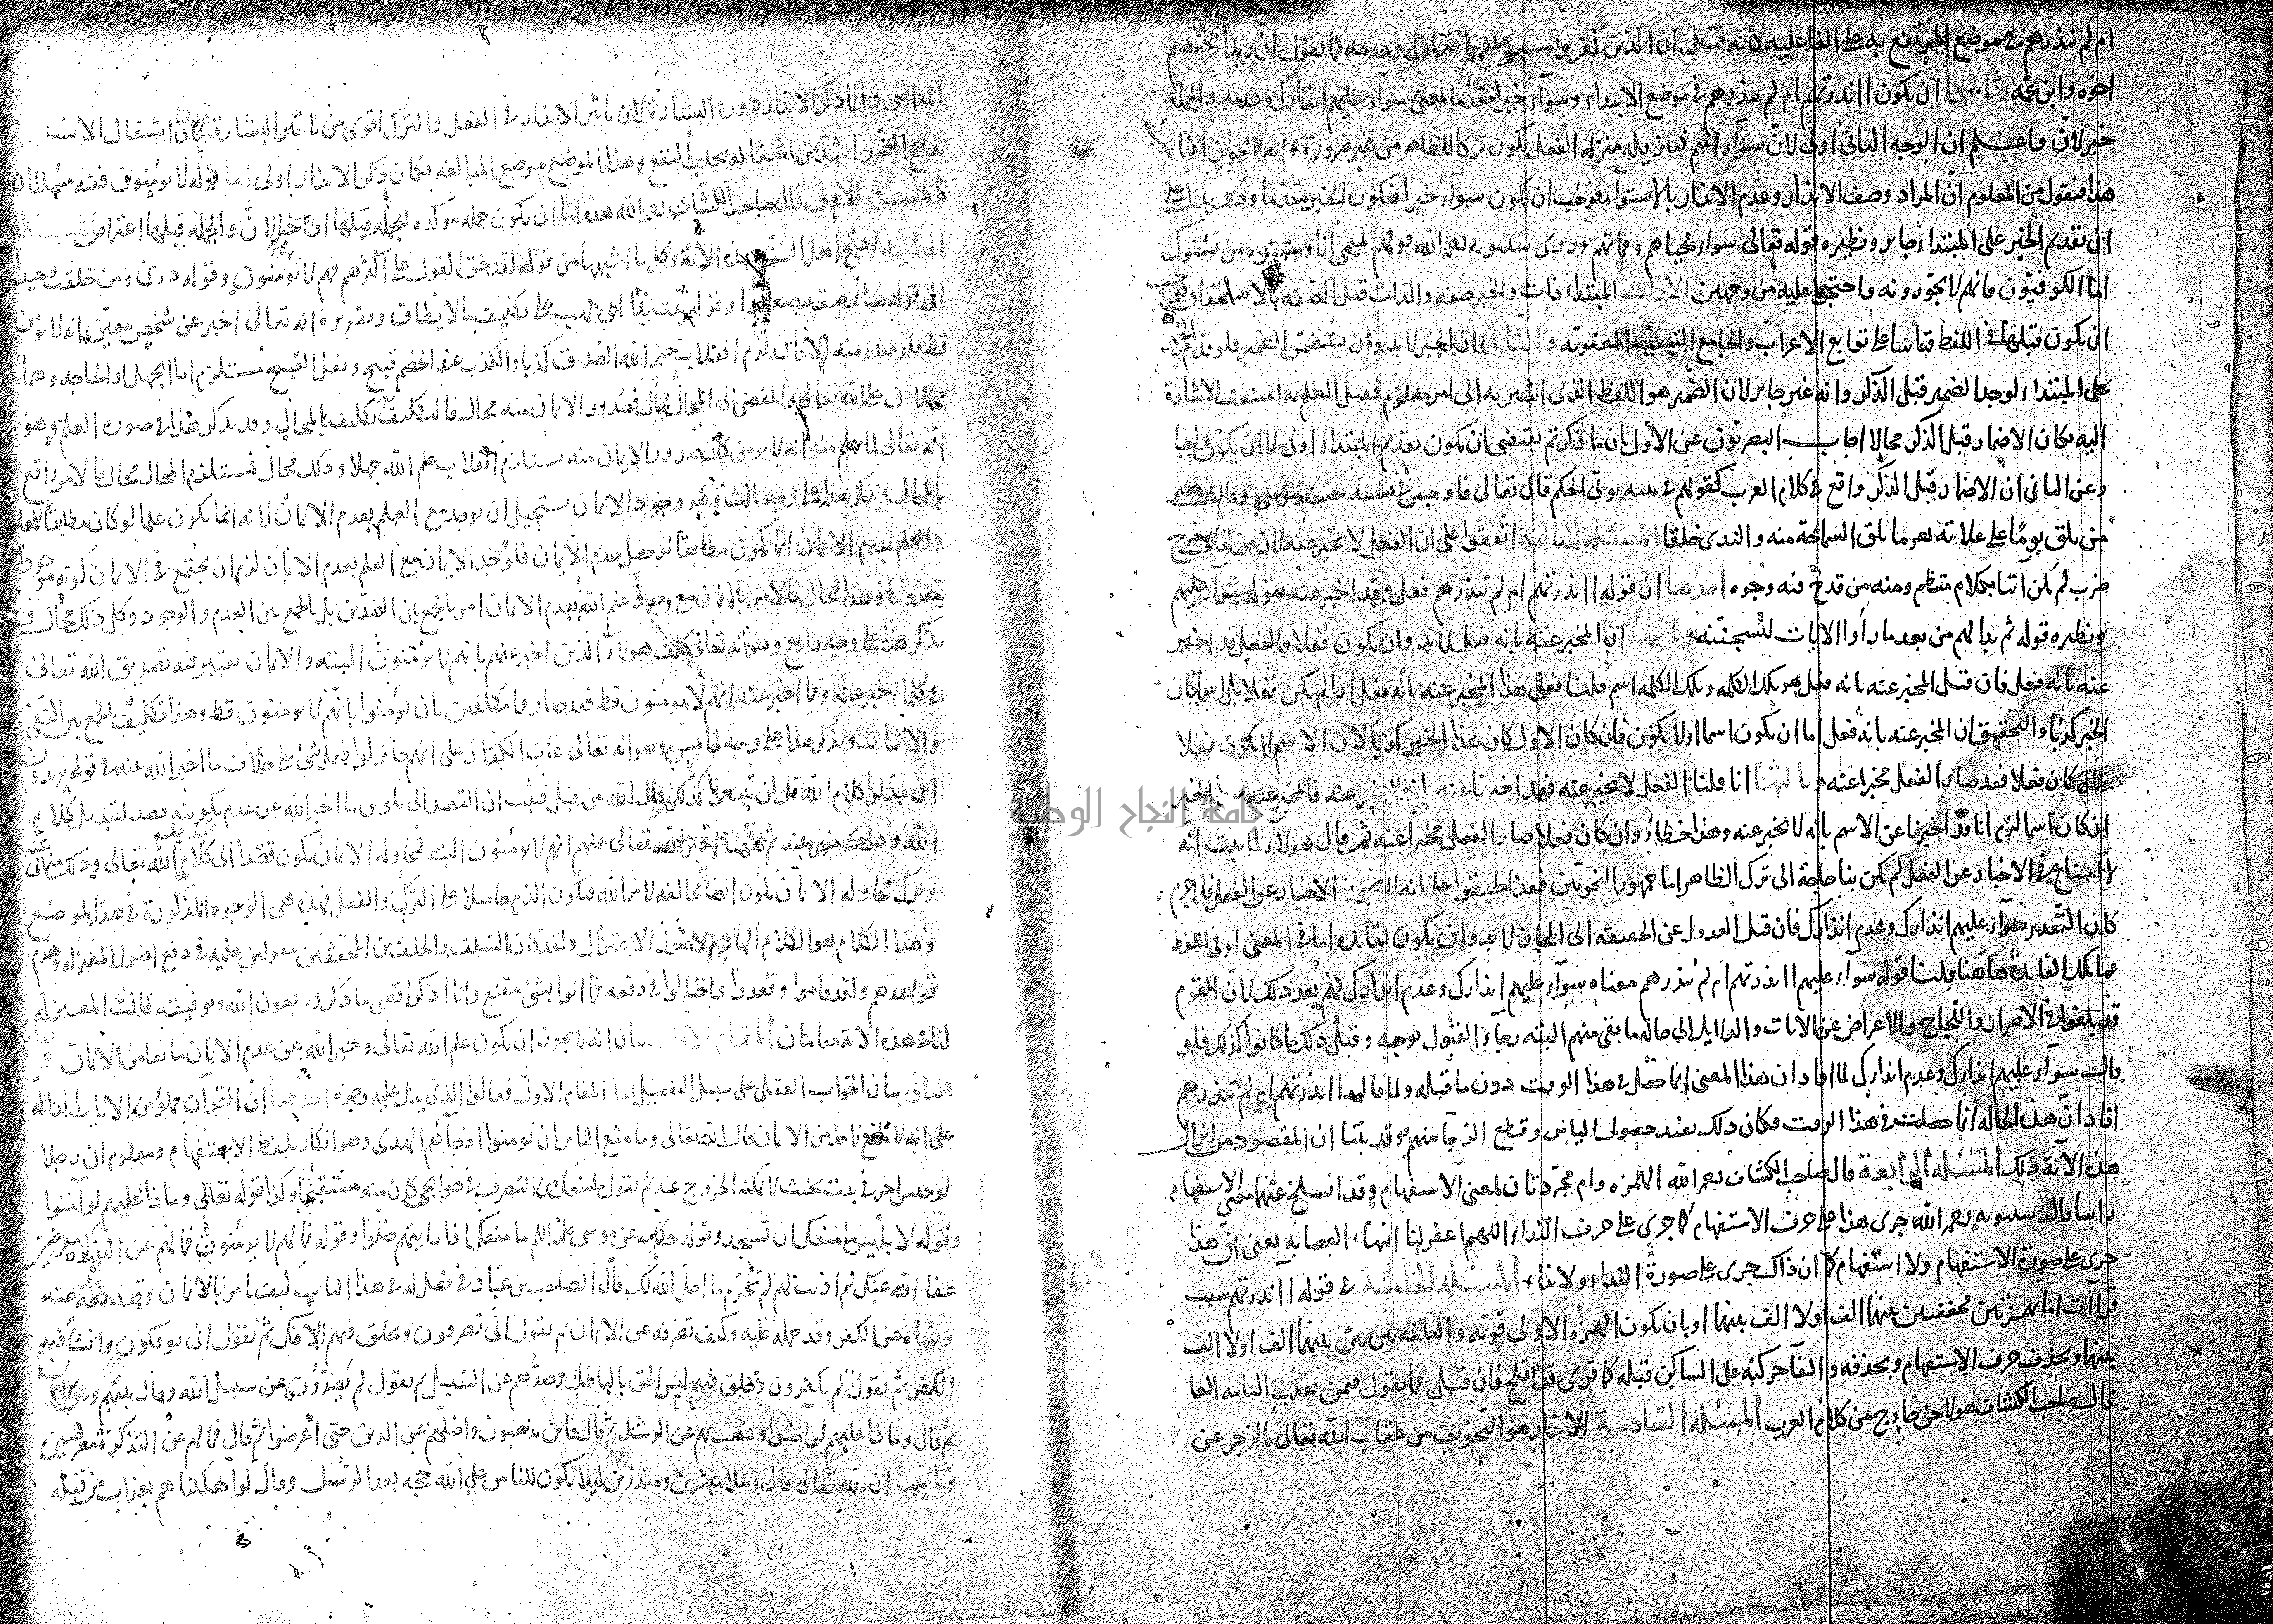 ام لم تنذرهم في موضع المرتفع به على الفاعلية كانه قيل ان الذين كفروا مستو عليهم انذارك وعدمه كما تقول ان زيدا مختصم
اخوه وابن عمه وثانيهما ان يكون اانذرتهم ام لم تنذرهم في موضع الابتداء وسواء خبرا مقدما لمعنى سواء عليهم انذارك وعدمه والجملة
خبر لان واعلم ان الوجه الثاني اولى لان سواء اسم فتنزيله منزلة الفعل يكون تركا للظاهر من غير ضرورة وانه لا يجوز اذا ثبت
هذا فنقول من المعلوم ان المراد وصف الانذار وعدم الانذار بالاستواء فوجب ان يكون سواء خبرا فيكون الخبر مقدما وذلك يدل على
ان تقديم الخبر على المبتداء جايز ونظيره قوله تعالى سواء محياهم ومماتهم وروى سيبويه رحمه الله قولهم تميمي انا ومشنوء من يشنؤك
اما الكوفيون فانهم لا يجوزونه واحتجوا عليه من وجهين الاول المبتداء ذات والخبر صفة والذات قبل الصفة بالاستحقاق فوجب
ان يكون قبلها في اللفظ قياسا على توابع الاعراب والجامع التبعية المعنوية والثاني ان الخبر لا بد وان يتضمن الضمير فلو قدم الخبر
على المبتداء لوجد الضمير قبل الذكر وانه غير جايز لان الضمير هو اللفظ الذي اشير به الى امر معلوم فقبل العلم به امتنعت الاشارة
اليه فكان الاضمار قبل الذكر محالا اجاب البصريون عن الاول ان ما ذكرتم يقتضي ان يكون تقديم المبتداء اولى لا ان يكون واجبا
وعن الثاني ان الاضمار قبل الذكر واقع في كلام العرب كقولهم في بيته يوتى الحكم قال تعالى فاوجس في نفسه خيفة موسى وقال زهير
من يلق يوما على علاته هرما يلق السماحة منه والندى خلقا المسئلة الثالثة اتفقوا على ان الفعل لا يخبر عنه لان من قال خرج
ضرب لم يكن اتيا بكلام منتظم ومنه من قدح فيه وجوه احدها ان قوله اانذرتهم ام لم تنذرهم فعل وقد اخبر عنه بقوله سواء عليهم
ونظيره قوله ثم بدا لهم من بعد ما راوا الايات ليسجننه وثانيها ان المخبر عنه بانه فعل لا بد وان يكون فعلا فالفعل قد اخبر
عنه بانه فعل فان قيل المخبر عنه بانه فعل هو تلك الكلمة وتلك الكلمة اسم قلنا فعلى هذا المخبر عنه بانه فعل اذا لم يكن فعلا بل اسما كان
الخبر كذبا والتحقيق ان المخبر عنه بانه فعل اما ان يكون اسما او لا يكون فان كان الاول كان هذا الخبر كذبا لان الاسم لا يكون فعلا
وان كان فعلا فقد صار الفعل مخبرا عنه وثالثها انا قلنا الفعل لا يخبر عنه فقد اخبرنا عنه
ان كان اسما لزم انا قد اخبرنا عن الاسم بانه لا يخبر عنه وهذا خطا وان كان فعلا صار الفعل مخبرا عنه ثم قال هولاء لما ثبت انه
لا امتناع في الاخبار عن الفعل لم يكن بنا حاجة الى ترك الظاهر اما جمهور النحويين فقد اطبقوا على انه لا يجوز الاخبار عن الفعل فلا جرم
كان التقدير سواء عليهم انذارك وعدم انذارك فان قيل العدول عن الحقيقة الى المجاز لا بد وان يكون لفايدة اما في المعنى او في اللفظ
فما تلك الفايدة هاهنا قلنا قوله سواء عليهم اانذرتهم ام لم تنذرهم معناه سواء عليهم انذارك وعدم انذارك لهم بعد ذلك لان القوم
قد بلغوا في الاصرار واللجاج والاعراض عن الايات والدلايل الى حالة ما بقي منهم البتة رجاء القبول بوجه وقبل ذلك ما كانوا كذلك فلو
قال سواء عليهم انذارك وعدم انذارك لما افاد ان هذا المعنى انما حصل في هذا الوقت دون ما قبله ولما قال اانذرتهم ام لم تنذرهم
افاد ان هذه الحالة انما حصلت في هذا الوقت فكان ذلك يفيد حصول الياس وقطع الرجا منهم وقد بينا ان المقصود من انزال
هذه الاية ذلك المسئلة الرابعة قال صاحب الكشاف رحمه الله الهمزة وام مجردتان لمعنى الاستفهام وقد انسلخ عنهما معنى الاستفهام
راسا قال سيبويه رحمه الله جرى هذا على حرف الاستفهام كما جرى على حرف النداء اللهم اغفر لنا ايتها العصابة يعني ان هذا
جرى على صورة الاستفهام ولا استفهام كما ان ذاك جرى على صورة النداء ولا نداء المسئلة الخامسة في قوله اانذرتهم ست
قراآت اما بهمزتين محققتين بينهما الف او لا الف بينهما او بان يكون الهمزة الاولى قوية والثانية بين بين بينهما الف او لا الف
بينهما وبحذف حرف الاستفهام وبحذفه والقآ حركته على الساكن قبله كما قرى قد افلح فان قيل فما تقول فيمن يقلب الثانية الفا
قال صاحب الكشاف هو لاحن خارج من كلام العرب المسئلة السادسة الانذار هو التخويف من عقاب الله تعالى بالزجر عن
المعاصي وانما ذكر الانذار دون البشارة لان تاثير الانذار في الفعل والترك اقوى من تاثير البشارة لان اشتغال الانسان
بدفع الضرر اشد من اشتغاله بجلب النفع وهذا الموضع موضع المبالغة فكان ذكر الانذار اولى اما قوله لا يؤمنون ففيه مسئلتان
المسئلة الاولى قال صاحب الكشاف رحمه الله هذه اما ان يكون جملة موكدة للجملة قبلها او خبرا لان والجملة قبلها اعتراض المسئلة
الثانية احتج اهل السنة بهذه الاية وكل ما اشبهها من قوله لقد حق القول على اكثرهم فهم لا يؤمنون وقوله ذرني ومن خلقت وحيدا
الى قوله سارهقه صعودا وقوله تبت يدا ابي لهب على تكليف ما لا يطاق وتقريره انه تعالى اخبر عن شخص معين انه لا يومن
قط فلو صدر منه الايمان لزم انقلاب خبر الله الصدق كذبا والكذب عند الخصم قبيح وفعل القبيح مستلزم اما الجهل او الحاجة وهما
محالان على الله تعالى والمفضي الى المحال محال فصدور الايمان منه محال فالتكليف به تكليف بالمحال وقد يذكر هذا في صورة العلم وهو
انه تعالى لما علم منه انه لا يومن كان صدور الايمان منه يستلزم انقلاب علم الله جهلا وذلك محال ومستلزم المحال محال فالامر واقع
بالمحال ونذكر هذا على وجه ثالث وهو وجود الايمان يستحيل ان يوجد مع العلم بعدم الايمان لانه انما يكون علما لو كان مطابقا للمعلوم
والعلم بعدم الايمان انما يكون مطابقا لو حصل عدم الايمان فلو وجد الايمان مع العلم بعدم الايمان لزم ان يجتمع في الايمان كونه موجودا
معدوما وهذا محال فالامر بالايمان مع وجود علم الله بعدم الايمان امر بالجمع بين الضدين بل بالجمع بين العدم والوجود وكل ذلك محال و
نذكر هذا على وجه رابع وهو انه تعالى كلف هولاء الذين اخبر عنهم بانهم لا يؤمنون البتة والايمان يعتبر فيه تصديق الله تعالى
في كلما اخبر عنه ومما اخبر عنه انهم لا يؤمنون قط فقد صاروا مكلفين بان يؤمنوا بانهم لا يومنون قط وهذا تكليف الجمع بين النفي
والاثبات ونذكر هذا على وجه خامس وهو انه تعالى عاب الكفار على انهم حاولوا فعل شئ على خلاف ما اخبر الله عنه في قوله يريدون
ان يبدلوا كلام الله قل لن تتبعونا كذلكم قال الله من قبل فثبت ان القصد الى تكوين ما اخبر الله عن عدم تكوينه قصد لتبديل كلام
الله وذلك منهي عنه ثم ههنا اخبر الله تعالى عنهم انهم لا يؤمنون البتة فمحاولة الايمان يكون قصدا الى تبديل كلام الله تعالى وذلك منهي عنه
وترك محاولة الايمان يكون ايضا مخالفة لامر الله فيكون الذم حاصلا على الترك والفعل فهذه هي الوجوه المذكورة في هذا الموضع
وهذا الكلام هو الكلام الهادم لاصول الاعتزال ولقد كان السلف والخلف من المحققين معولين عليه في دفع اصول المعتزلة وهدم
قواعدهم ولقد قاموا وقعدوا واحتالوا في دفعه فما اتوا بشئ مقنع وانا اذكر اقصى ما ذكروه بعون الله وتوفيقه قالت المعتزلة
لنا في هذه الاية مقامان المقام الاول بيان انه لا يجوز ان يكون علم الله تعالى وخبر الله عن عدم الايمان مانعا من الايمان والمقام
الثاني بيان الجواب العقلي على سبيل التفصيل اما المقام الاول فقالوا الذي يدل عليه وجوه احدها ان القران مملو من الايات الدالة
على انه لا مانع لاحد من الايمان قال الله تعالى وما منع الناس ان يومنوا اذ جاءهم الهدى وهو انكار بلفظ الاستفهام ومعلوم ان رجلا
لو حبس اخر في بيت بحيث لا يمكنه الخروج عنه ثم يقول ما منعك من التصرف في حوايجي كان منه مستقبحا وكذا قوله تعالى وماذا عليهم لو امنوا
وقوله لابليس ما منعك ان تسجد وقوله حكاية عن موسى عليه السلم ما منعك اذ رايتهم ضلوا وقوله فما لهم لا يؤمنون فما لهم عن التذكرة معرضين
عفا الله عنك لم اذنت لهم لم تحرم ما احل الله لك قال الصاحب بن عباد في فصل له في هذا الباب كيف يامر بالايمان وقد منعه عنه
وينهاه عن الكفر وقد حمله عليه وكيف تصرفه عن الايمان ثم يقول انى تصرفون ويخلق فيهم الافك ثم يقول انى يوفكون وانشا فيهم
الكفر ثم يقول لم تكفرون وخلق فيهم لبس الحق بالباطل وصدهم عن السبيل ثم يقول لم تصدون عن سبيل الله وحال بينهم وبين الايمان
ثم قال وماذا عليهم لو امنوا وذهب بهم عن الرشد ثم قال فاين تذهبون واضلهم عن الدين حتى اعرضوا ثم قال فما لهم عن التذكرة معرضين
وثانيها ان الله تعالى قال رسلا مبشرين ومنذرين ليلا يكون للناس على الله حجة بعد الرسل وقال ولو انا اهلكناهم بعذاب من قبله
جامعة النجاح الوطنية